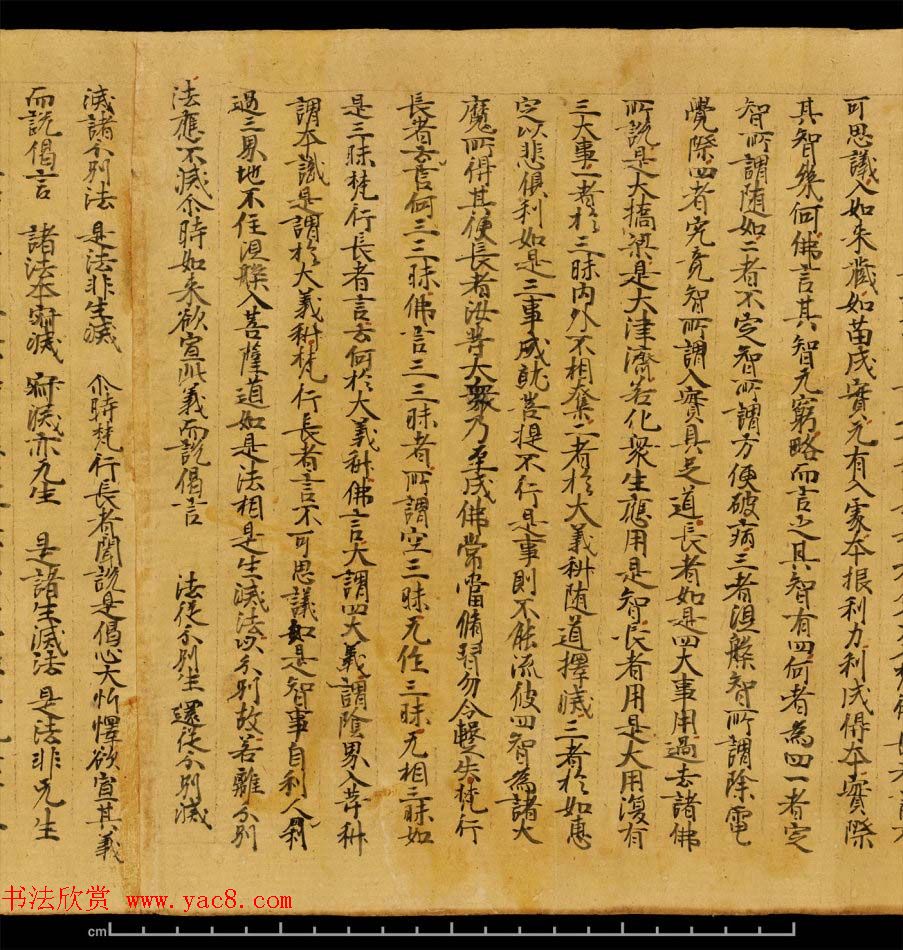 可思議入如来藏如苗成實无有入處本根利力利成得本實際
其智幾何佛言其智无窮略而言之其智有四何者為四一者定
智所謂随如二者不定智所謂方便破病三者涅槃智所謂除電
覺際四者究竟智所謂入實具足道長者如是四大事用過去諸佛
所說是大橋梁是大津濟若化衆生應用是智長者用是大用復有
三大事一者於三昧内外不相奪二者於大義科随道擇滅三者於如惠
定以悲俱利如是三事成就菩提不行是事則不能流彼四智為諸大
魔所得其便長者汝等大衆乃至成佛常當脩習勿令暫失梵行
長者言云何三三昧佛言三三昧者所謂空三昧无住三昧无相三昧如
是三昧梵行長者言云何於大義科佛言大謂四大義謂陰界入等科
謂本識是謂於大義科梵行長者言不可思議如是智事自利人利
過三界地不住涅槃入菩薩道如是法相是生滅法以分別故若離分別
法應不滅尒時如来欲宣此義而說偈言 法從分別生 還從分別滅
滅諸分別法 是法非生滅 尒時梵行長者聞說是偈心大忻懌欲宣其義
而說偈言 諸法本寂滅 寂滅亦无生 是諸生滅法 是法非无生
书法欣赏 www.yac8.com
cm